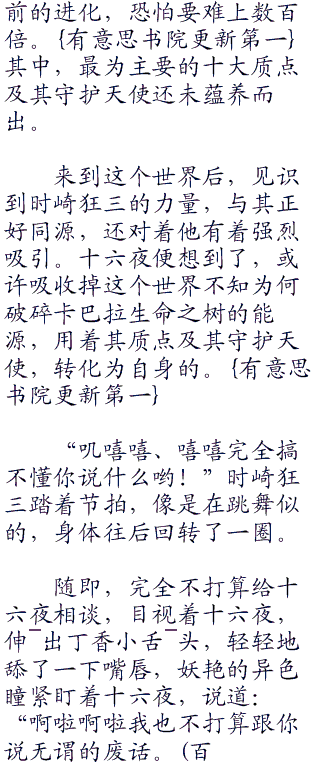 前的进化，恐怕要难上数百
倍。{有意思书院更新第一}
其中，最为主要的十大质点
及其守护天使还未蕴养而
出。
来到这个世界后，见识
到时崎狂三的力量，与其正
好同源，还对着他有着强烈
吸引。十六夜便想到了，或
许吸收掉这个世界不知为何
破碎卡巴拉生命之树的能
源，用着其质点及其守护天
使，转化为自身的。{有意思
书院更新第一}
“叽嘻嘻、嘻嘻完全搞
不懂你说什么哟！”时崎狂
三踏着节拍，像是在跳舞似
的，身体往后回转了一圈。
随即，完全不打算给十
六夜相谈，目视着十六夜，
伸¯出丁香小舌¯头，轻轻地
舔了一下嘴唇，妖艳的异色
瞳紧盯着十六夜，说道：
“啊啦啊啦我也不打算跟你
说无谓的废话。(百